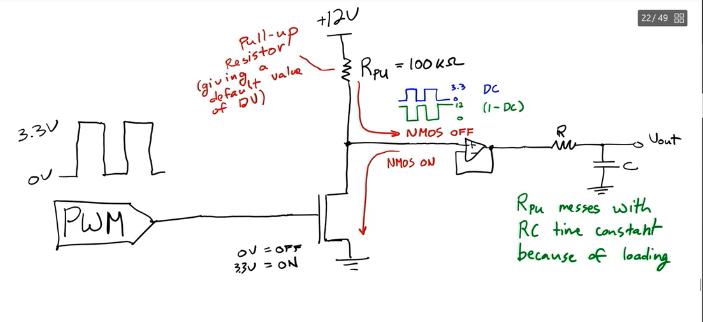 22 / 49
+12V
Pull-up
Resistor
(giving a
default value
of 0V)
RPU = 100kΩ
3.3
0
DC
12
0
(1-DC)
NMOS OFF
NMOS ON
3.3V
0V
PWM
0V = OFF
3.3V = ON
+
-
R
Vout
C
RPU messes with
RC time constant
because of loading